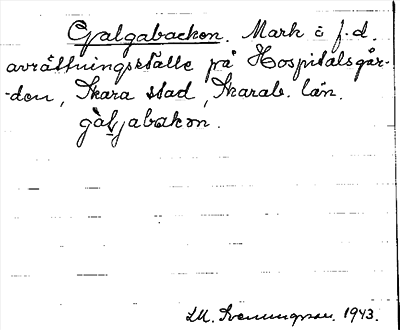 Galgabacken. Mark å f.d.
avrättningsställe på Hospitalsgår-
-den, Skara stad, Skarab. län.
galjabakon.
Svenningson. 1943.